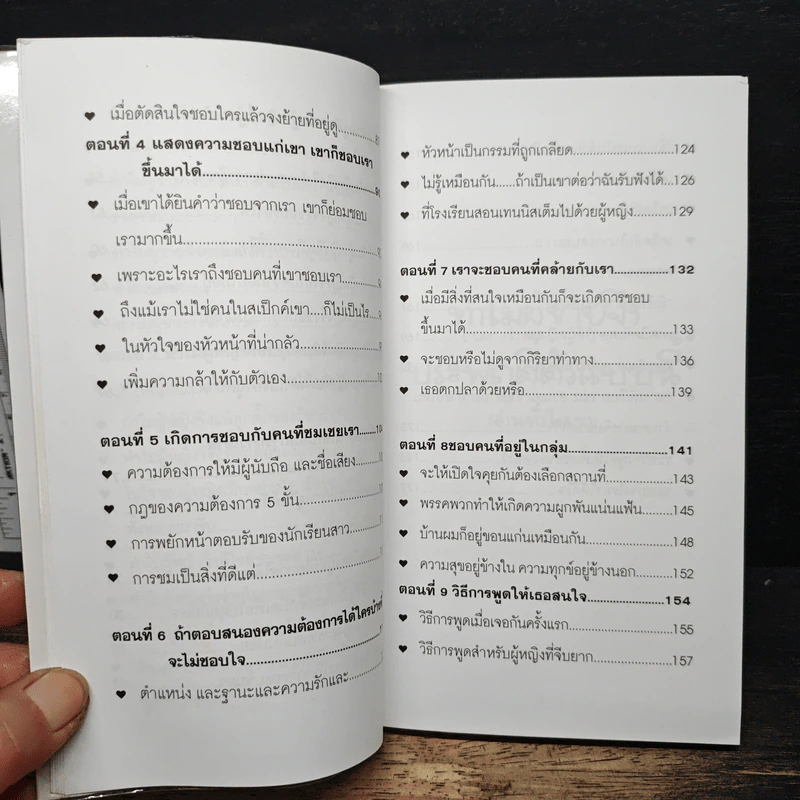 ♥ เมื่อตัดสินใจชอบใครแล้วจงย้ายที่อยู่ดู
ตอนที่ 4 แสดงความชอบแก่เขา เขาก็ชอบเรา
ขึ้นมาได้
♥ เมื่อเขาได้ยินคำว่าชอบจากเรา เขาก็ย่อมชอบ
เรามากขึ้น
♥ เพราะอะไรเราถึงชอบคนที่เขาชอบเรา
♥ ถึงแม้เราไม่ใช่คนในสเป็กค์เขา....ก็ไม่เป็นไร
♥ ในหัวใจของหัวหน้าที่น่ากลัว
♥ เพิ่มความกล้าให้กับตัวเอง
ตอนที่ 5 เกิดการชอบกับคนที่ชมเชยเรา
♥ ความต้องการให้มีผู้นับถือ และชื่อเสียง
♥ กฎของความต้องการ 5 ขั้น
♥ การพยักหน้าตอบรับของนักเรียนสาว
♥ การชมเป็นสิ่งที่ดีแต่
ตอนที่ 6 ถ้าตอบสนองความต้องการได้ใครบ้างที่
จะไม่ชอบใจ
♥ ตำแหน่ง และฐานะและความรักและ
♥ หัวหน้าเป็นกรรมที่ถูกเกลียด 124
♥ ไม่รู้เหมือนกัน.....ถ้าเป็นเขาต่อว่าฉันรับฟังได้ 126
♥ ที่โรงเรียนสอนเทนนิสเต็มไปด้วยผู้หญิง 129
ตอนที่ 7 เราจะชอบคนที่คล้ายกับเรา 132
♥ เมื่อมีสิ่งที่สนใจเหมือนกันก็จะเกิดการชอบ
ขึ้นมาได้ 133
♥ จะชอบหรือไม่ดูจากกิริยาท่าทาง 136
♥ เธอตกปลาด้วยหรือ 139
ตอนที่ 8ชอบคนที่อยู่ในกลุ่ม 141
♥ จะให้เปิดใจคุยกันต้องเลือกสถานที่ 143
♥ พรรคพวกทำให้เกิดความผูกพันแน่นแฟ้น 145
♥ บ้านผมก็อยู่ขอนแก่นเหมือนกัน 148
♥ ความสุขอยู่ข้างใน ความทุกข์อยู่ข้างนอก 152
ตอนที่ 9 วิธีการพูดให้เธอสนใจ 154
♥ วิธีการพูดเมื่อเจอกันครั้งแรก 155
♥ วิธีการพูดสำหรับผู้หญิงที่จีบยาก 157